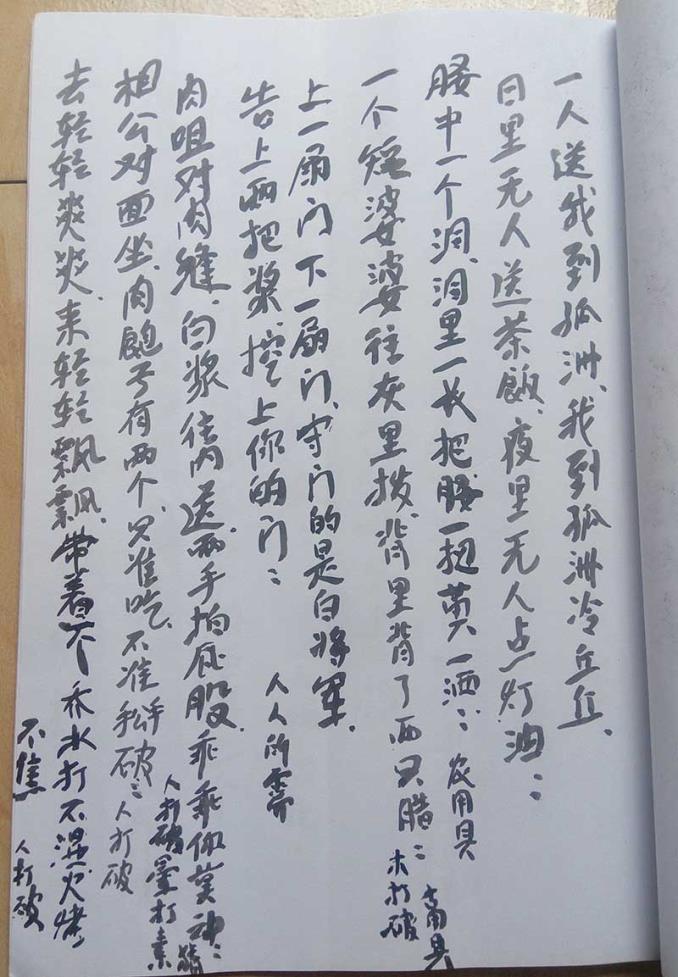 一人送我到孤洲、我到孤洲冷丘丘、
日里无人送茶飯、夜里无人点灯油：
腰中一个洞、洞里一长把腰一扭黄一洒：农用具
一个矮婆婆往灰里拨、背里背了两只腊：木打破 畜具
上一扇门下一扇门、守门的是白将军、
告上两把浆、挖上你的门：人人所需
肉咀对肉缝、白浆往内送、两手拍屁股、乖乖你莫动：人打破 打素
相公对面坐、肉皰子有两个、只准吃、不准破：人打破
去轻轻爽爽、来轻轻飘飘、带着不
水打不湿火烤
不焦 人打破